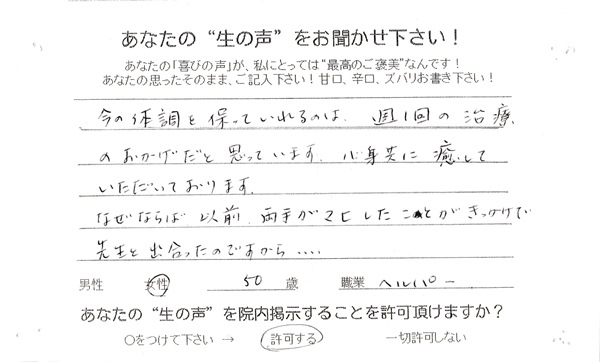 あなたの“生の声”をお聞かせ下さい！
あなたの「喜びの声」が、私にとっては“最高のご褒美”なんです！
あなたの思ったそのまま、ご記入下さい！甘口、辛口、ズバリお書き下さい！
今の体調を保っていれるのは、週1回の治療
のおかげだと思っています。心身共に癒して
いただいております。
なぜならば以前、両手がマヒしたことがきっかけで
先生と出合ったのですから....
男性 女性 50 歳 職業 ヘルパー
あなたの“生の声”を院内掲示することを許可頂けますか？
○をつけて下さい → 許可する 一切許可しない